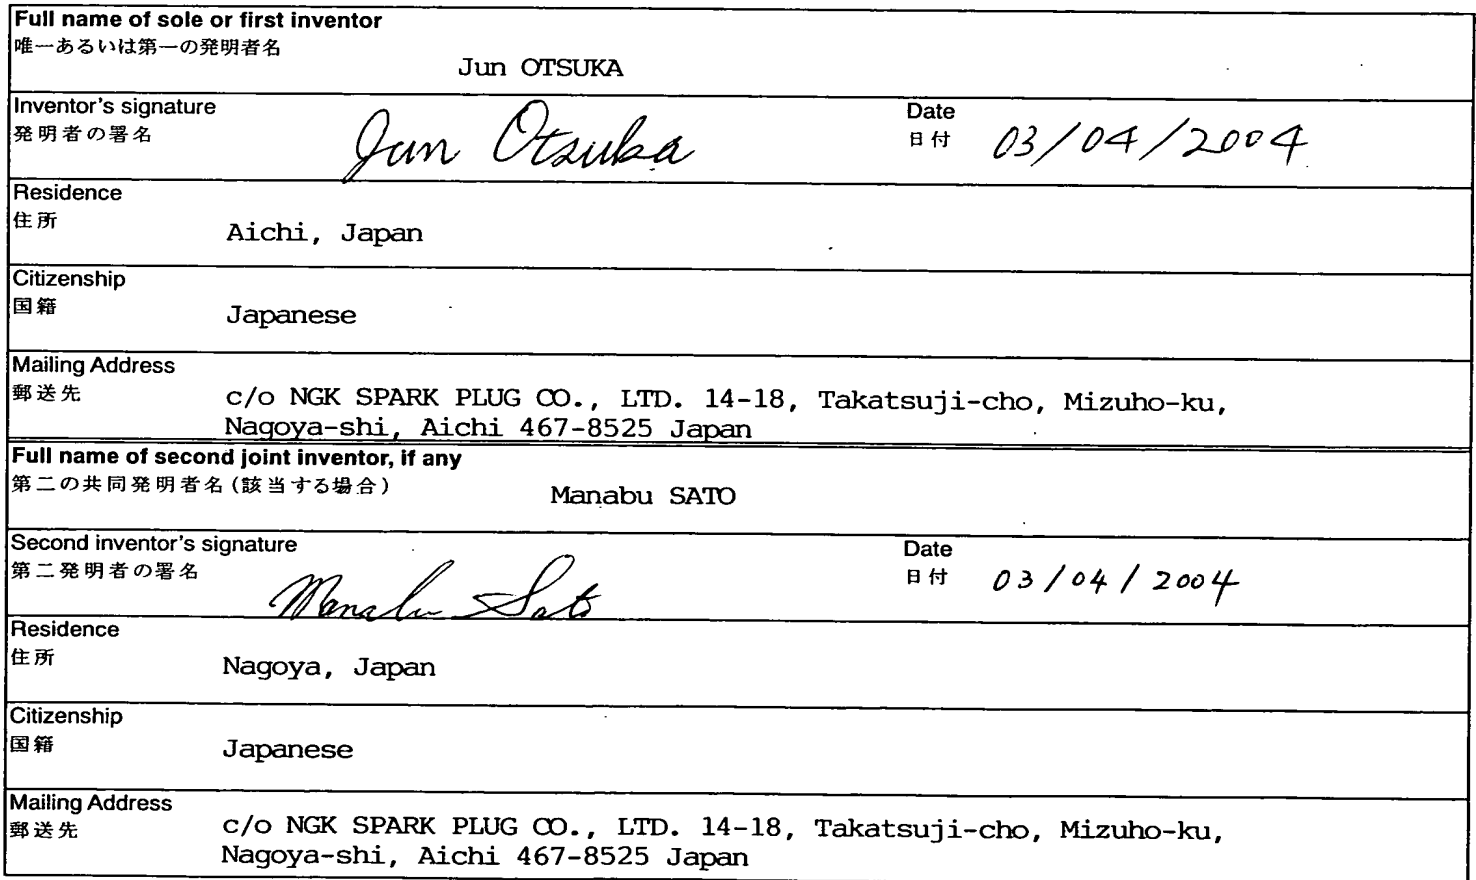 Full name of sole or first inventor
唯一あるいは第一の発明者名
Jun OTSUKA
Inventor's signature
発明者の署名
Jun Otsuka
Date
日付
03/04/2004
Residence
住所
Aichi, Japan
Citizenship
国籍
Japanese
Mailing Address
郵送先
c/o NGK SPARK PLUG CO., LTD. 14-18, Takatsuji-cho, Mizuho-ku,
Nagoya-shi, Aichi 467-8525 Japan
Full name of second joint inventor, if any
第二の共同発明者名(該当する場合)
Manabu SATO
Second inventor's signature
第二発明者の署名
Manabu Sato
Date
日付
03/04/2004
Residence
住所
Nagoya, Japan
Citizenship
国籍
Japanese
Mailing Address
郵送先
c/o NGK SPARK PLUG CO., LTD. 14-18, Takatsuji-cho, Mizuho-ku,
Nagoya-shi, Aichi 467-8525 Japan